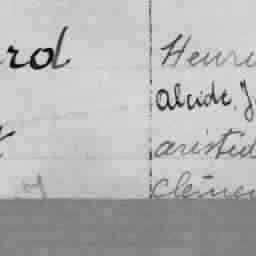 rd Henri
Alcide, J
aristid
clémen